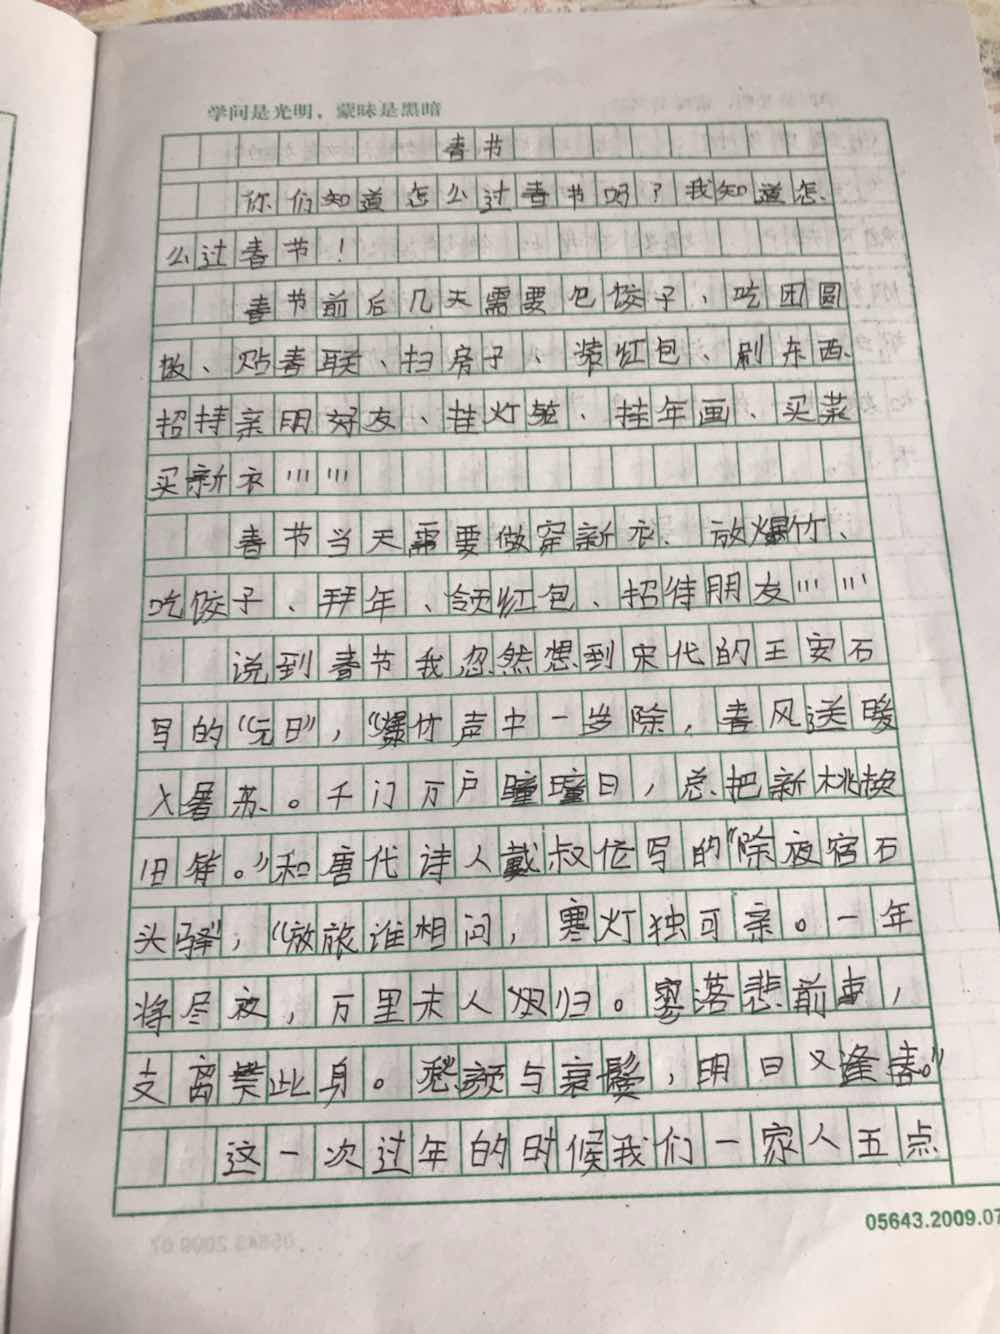 学问是光明，蒙昧是黑暗
春节
你们知道怎么过春节吗？我知道怎
么过春节！
春节前后几天需要包饺子、吃团圆
饭、贴春联、扫房子、装红包、刷东西、
招持亲朋好友、挂灯笼、挂年画、买菜
买新衣……
春节当天需要做穿新衣、放爆竹、
吃饺子、拜年、领红包、招待朋友……
说到春节我忽然想到宋代的王安石
写的“元日”，“爆竹声中一岁除，春风送暖
入屠苏。千门万户瞳瞳日，总把新桃换
旧符。”和唐代诗人戴叔伦写的“除夜宿石
头驿”，“旅谁相问，寒灯独可亲。一年
将尽夜，万里未人归。寥落悲前事，
支离笑此身。愁颜与衰鬓，明日又逢春。”
这一次过年的时候我们一家人五点
05643.2009.07